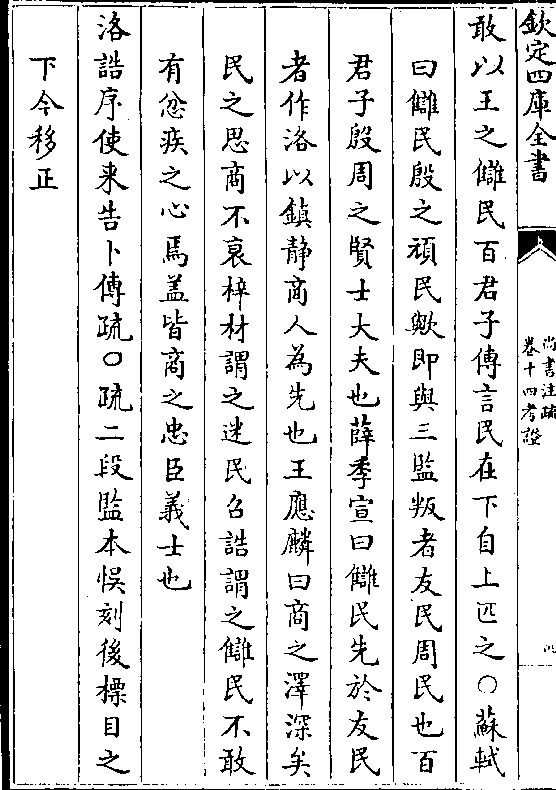 欽定四庫全書
尚書注疏
卷十四考證
敢以王之讎民百君子傳言民在下自上匹之〇蘇軾
曰讎民殷之頑民歟即與三監叛者友民周民也百
君子殷周之賢士大夫也薛季宣曰讎民先於友民
者作洛以鎮静商人為先也王應麟曰商之澤深矣
民之思商不衰梓材謂之迷民召誥謂之讎民不敢
有忿疾之心焉盖皆商之忠臣義士也
洛誥序使来告卜傳疏〇疏二段監本悮刻後標目之
下今移正